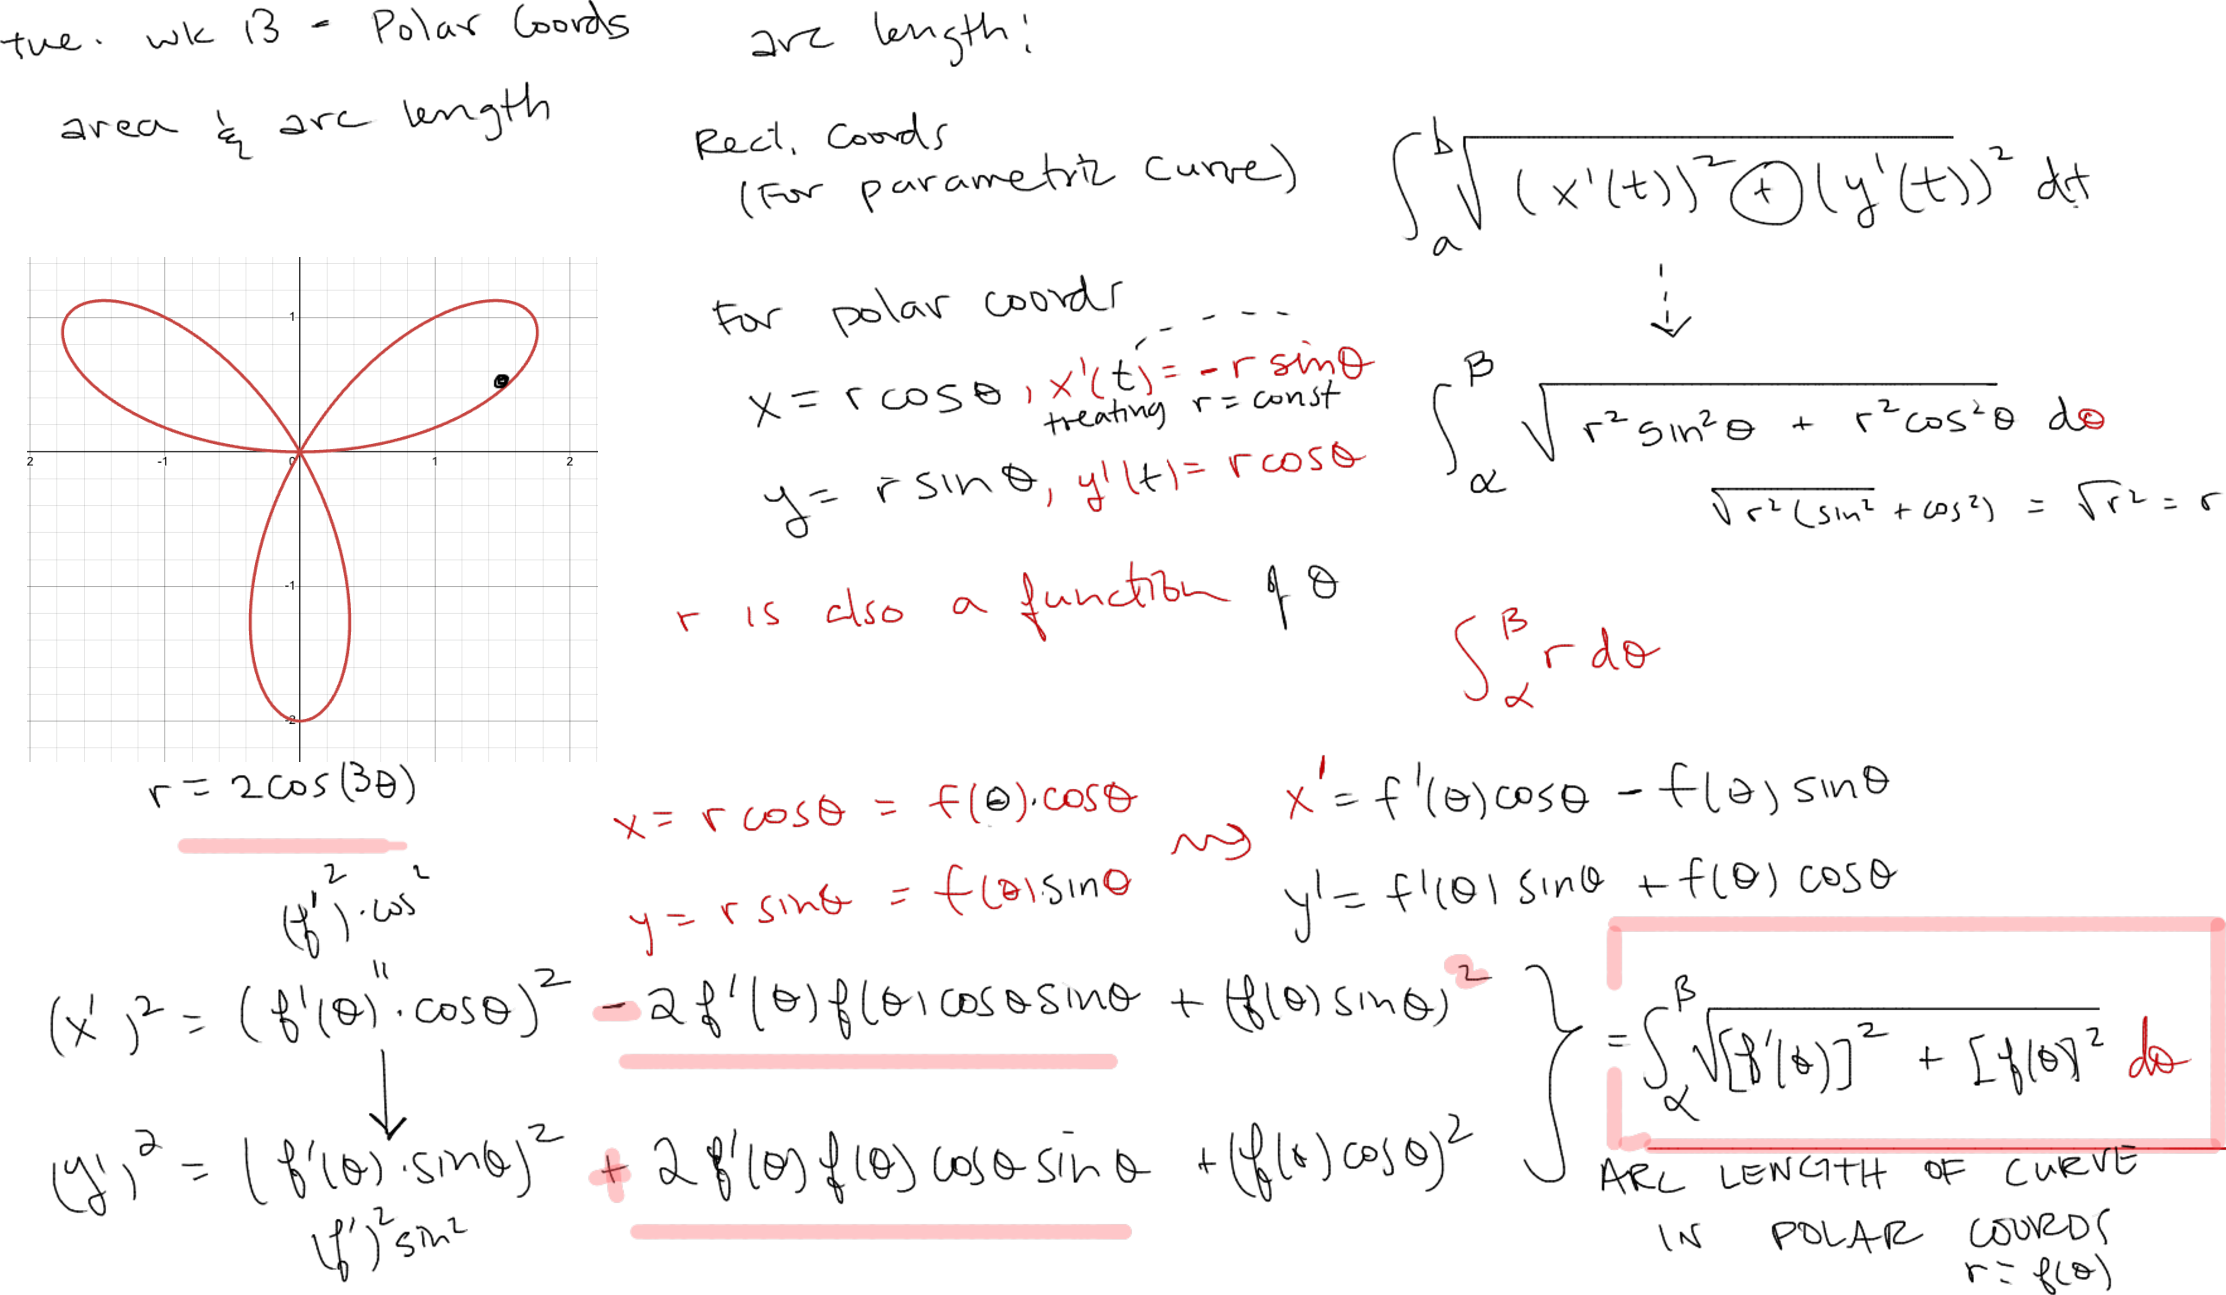 tue. wk 13 - Polar Coords
area & arc length
1
2 -1 0 1 2
-1
-2
r = 2cos(3θ)
arc length:
Rect. Coords
(For parametric curve)
∫_a^b √((x'(t))² + (y'(t))²) dt
For polar coords
x = r cosθ, x'(t) = -r sinθ
treating r = const
y = r sinθ, y'(t) = r cosθ
∫_α^β √(r² sin²θ + r² cos²θ) dθ
√(r²(sin² + cos²)) = √r² = r
r is also a function of θ
∫_α^β r dθ
x = r cosθ = f(θ)·cosθ
y = r sinθ = f(θ) sinθ
x' = f'(θ) cosθ - f(θ) sinθ
y' = f'(θ) sinθ + f(θ) cosθ
(f')²·cos²
"
(x')² = (f'(θ)·cosθ)² - 2f'(θ)f(θ)cosθ sinθ + (f(θ) sinθ)²
(y')² = (f'(θ)·sinθ)² + 2f'(θ)f(θ) cosθ sinθ + (f(θ) cosθ)²
(f')² sin²
= ∫_α^β √([f'(θ)]² + [f(θ)]²) dθ
ARC LENGTH OF CURVE
IN POLAR COORDS
r = f(θ)